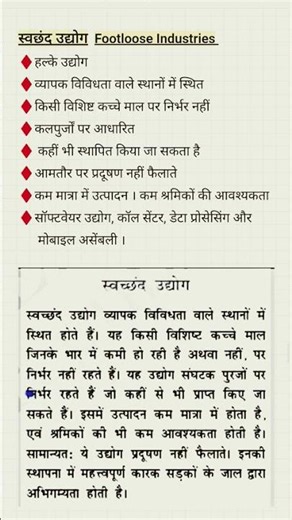 स्वछंद उद्योग Footloose Industries
हल्के उद्योग
व्यापक विविधता वाले स्थानों में स्थित
किसी विशिष्ट कच्चे माल पर निर्भर नहीं
कलपुर्जों पर आधारित
कहीं भी स्थापित किया जा सकता है
आमतौर पर प्रदूषण नहीं फैलाते
कम मात्रा में उत्पादन । कम श्रमिकों की आवश्यकता
सॉफ्टवेयर उद्योग, कॉल सेंटर, डेटा प्रोसेसिंग और
मोबाइल असेंबली ।
स्वच्छंद उद्योग
स्वच्छंद उद्योग व्यापक विविधता वाले स्थानों में
स्थित होते हैं। यह किसी विशिष्ट कच्चे माल
जिनके भार में कमी हो रही है अथवा नहीं, पर
निर्भर नहीं रहते हैं। यह उद्योग संघटक पुरजों पर
निर्भर रहते हैं जो कहीं से भी प्राप्त किए जा
सकते हैं। इसमें उत्पादन कम मात्रा में होता है,
एवं श्रमिकों की भी कम आवश्यकता होती है।
सामान्यत: ये उद्योग प्रदूषण नहीं फैलाते। इनकी
स्थापना में महत्त्वपूर्ण कारक सड़कों के जाल द्वारा
अभिगम्यता होती है।